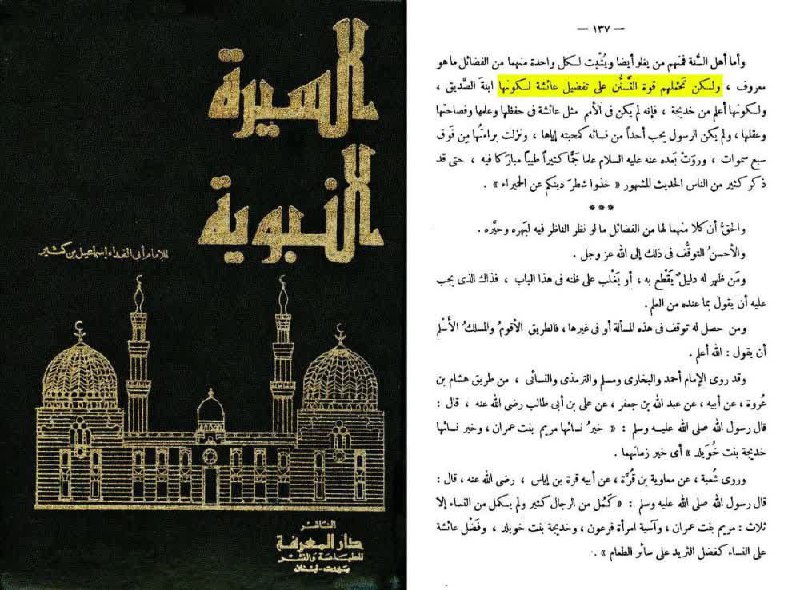 السيرة
النبوية
للإمام أبى الفداء إسماعيل بن كثير
الناشر
دار المعرفة
للطباعة والنشر
بيروت - لبنان
— ١٣٧ —
وأما أهل السُّنة فمنهم من يغلو أيضا ويُثبت لكل واحدة منهما من الفضائل ما هو
معروف ، ولكن تحملهم قوة التَّسنُّن على تفضيل عائشة لكونها ابنة الصِّديق ،
ولكونها أعلم من خديجة ، فإنه لم يكن فى الأمم مثل عائشة فى حفظها وعلمها وفصاحتها
وعقلها ، ولم يكن الرسول يحب أحداً من نسائه كمحبته إياها ، ونزلت براءتها من فوق
سبع سموات ، وروتْ بَعده عنه عليه السلام علما جَمًّا كثيراً طيباً مباركا فيه ، حتى قد
ذكر كثير من الناس الحديث المشهور « خذوا شطرَ دينكم عن الحميراء » .
***
والحقُّ أن كلا منهما لها من الفضائل ما لو نظر الناظر فيه لبَهره وحيَّره .
والأحسنُ التوقُّف فى ذلك إلى الله عز وجل .
ومَن ظهر له دليلٌ يَقْطع به ، أو يَغْلب على ظنه فى هذا الباب ، فذاك الذى يجب
عليه أن يقول بما عنده من العلم .
ومن حصل له توقف فى هذه المسألة أو فى غيرها ، فالطريق الأقومُ والمسلكُ الأَسْلم
أن يقول : الله أعلم .
وقد روى الإمام أحمد والبخارى ومسلم والترمذى والنسائى ، من طريق هشام بن
عُروة ، عن أبيه ، عن عبد الله بن جعفر ، عن على بن أبى طالب رضى الله عنه ، قال :
قال رسول الله صلى الله عليه وسلم : « خيرُ نسائها مريم بنت عمران ، وخير نسائها
خديجة بنت خُوَيلد » أى خير زمانهما .
وروى شُعبة ، عن معاوية بن قُرَّة ، عن أبيه قرة بن إياس ، رضى الله عنه ، قال :
قال رسول الله صلى الله عليه وسلم : « كَمُل من الرجال كثير ولم يكمل من النساء إلا
ثلاث : مريم بنت عمران ، وآسية امرأة فرعون ، وخديجة بنت خويلد ، وفَضْل عائشة
على النساء كفضل الثريد على سائر الطعام » .